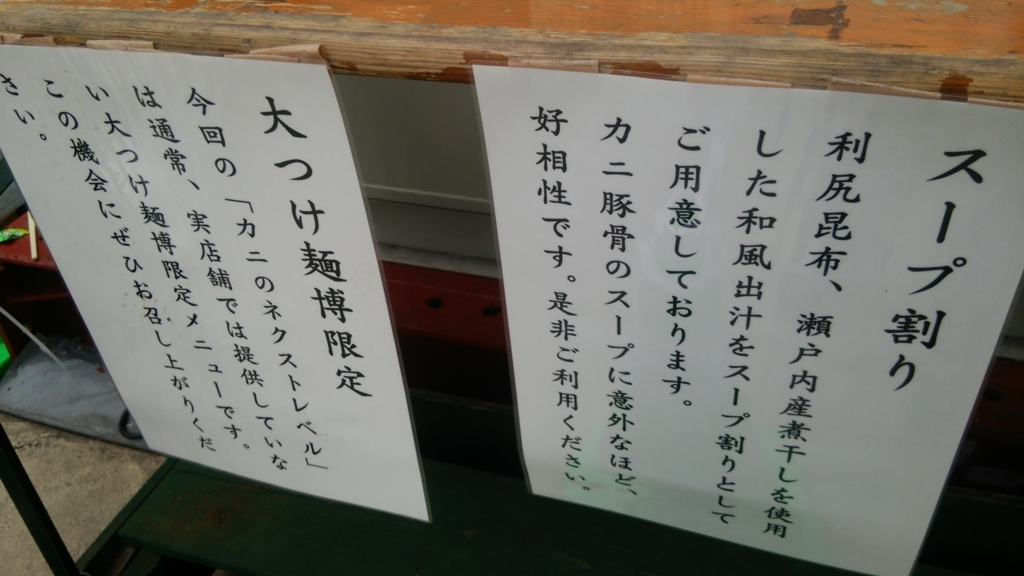 スープ割り
利尻昆布、瀬戸内産煮干しを使用
した和風出汁をスープ割りとして
ご用意しております。
カニ豚骨のスープに意外なほど、
好相性です。是非ご利用ください。
大つけ麺博限定
今回の「カニのネクストレベル」
は通常、実店舗では提供していな
い大つけ麺博限定メニューです。
この機会にぜひお召し上がりくだ
さい。